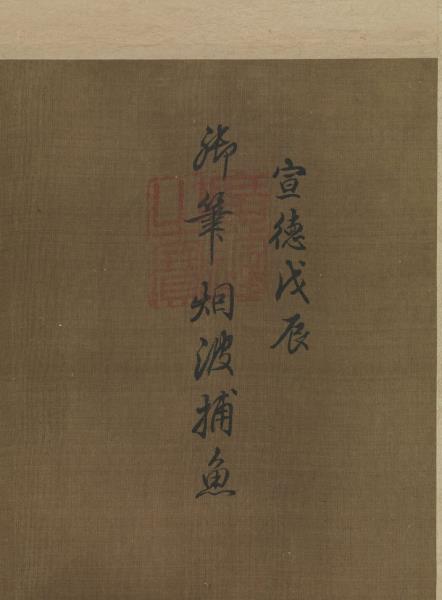 宣德戊辰
御筆烟波捕魚